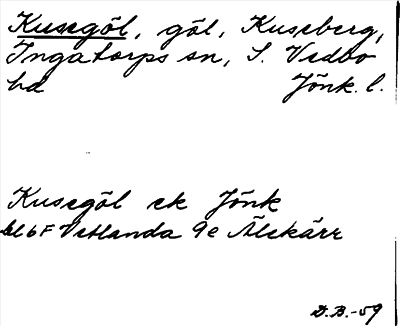 Kusegöl, göl, Kuseberg,
Ingatorps sn, S. Vedbo
hd Jönk. l.
Kusegöl ek Jönk
bl 6F Vetlanda 9e Älekärr
D.B.-59